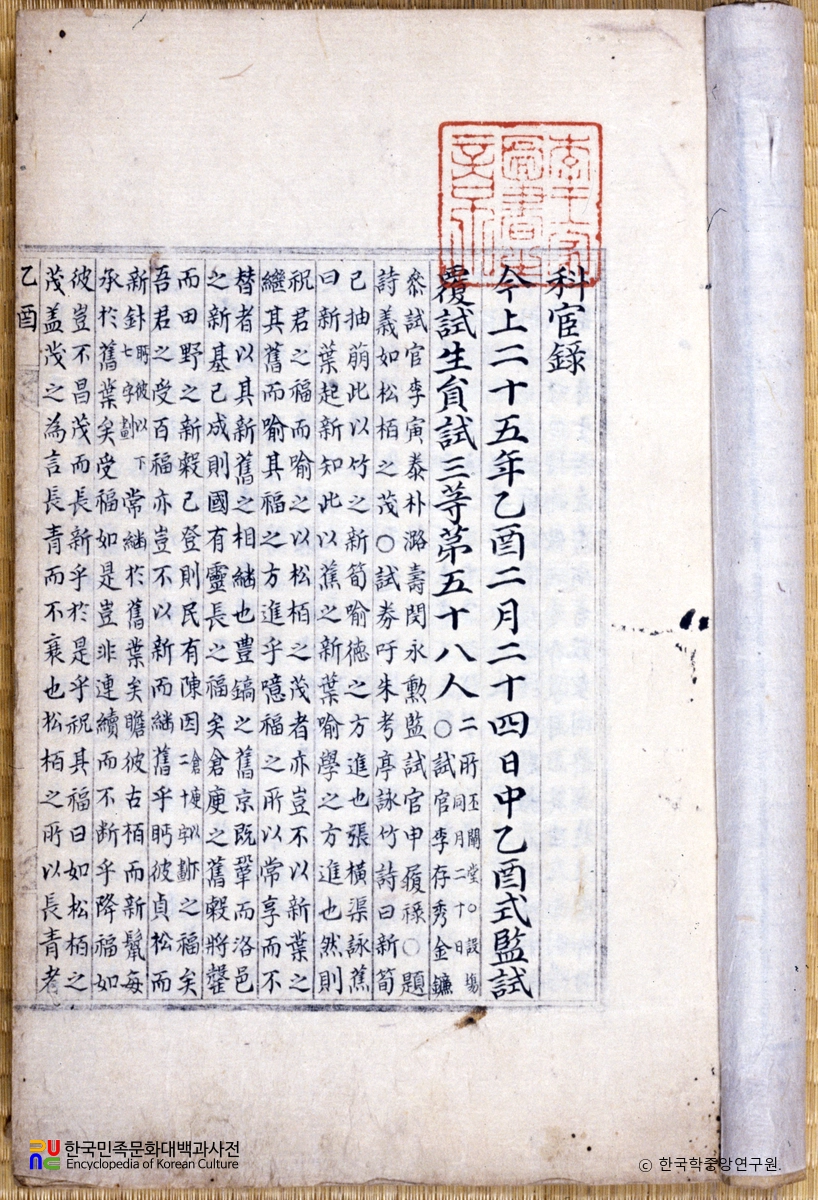 科宦錄
今上二十五年乙酉二月二十四日中乙酉式監試
覆試生員試三等第五十八人二所丕闡堂○設場同月二十日○試官李存秀金鐮
叅試官李寅泰朴潞壽閔永勳監試官申履祿○題
詩義如松栢之茂○試券吁朱考亭詠竹詩曰新筍
已抽萠此以竹之新筍喻德之方進也張橫渠詠蕉
曰新葉起新知此以蕉之新葉喻學之方進也然則
祝君之福而喻之以松栢之茂者亦豈不以新葉之
繼其舊而喻其福之方進乎噫福之所以常享而不
替者以其新舊之相繼也豊鎬之舊京旣鞏而洛邑
之新基已成則國有靈長之福矣倉庾之舊穀將罄
而田野之新穀已登則民有陳因二倉庾以下十字劃之福矣
吾君之受百福亦豈不以新而繼舊乎眄彼貞松而
新針眄彼以下七字劃常繼於舊葉矣瞻彼古栢而新鬣每
承於舊葉矣受福如是豈非連續而不断乎降福如
彼豈不昌茂而長新乎於是乎祝其福曰如松栢之
茂盖茂之為言長青而不衰也松栢之所以長青者
乙酉
한국민족문화대백과사전
Encyclopedia of Korean Culture
© 한국학중앙연구원